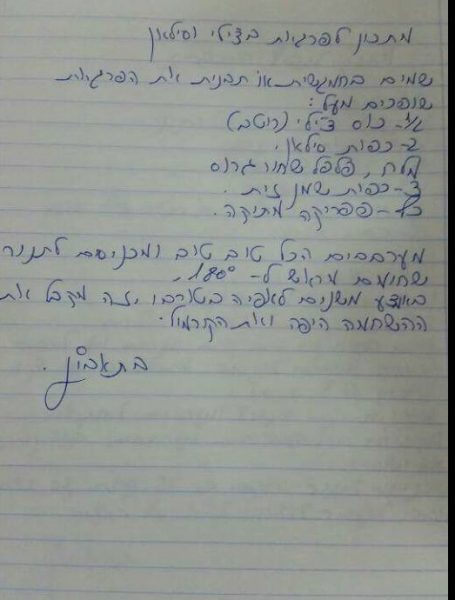 מתכון לפרגיות בצ'ילי וסילאן
שמים בחמגשית או תבנית את הפרגיות
שופכים מעל:
1/2 - כוס צ'ילי (רוטב)
2 - כפות סילאן.
מלח, פלפל שחור גרוס
3 - כפות שמן זית.
כף - פפריקה מתיקה.
מערבבים הכל טוב טוב ומכניסים לתנור
שחומם מראש ל- 180°,
באמצע משנים לאפיה בטורבו, וזה מקבל את
ההשחמה היפה ואת הקרמול.
בתאבון.